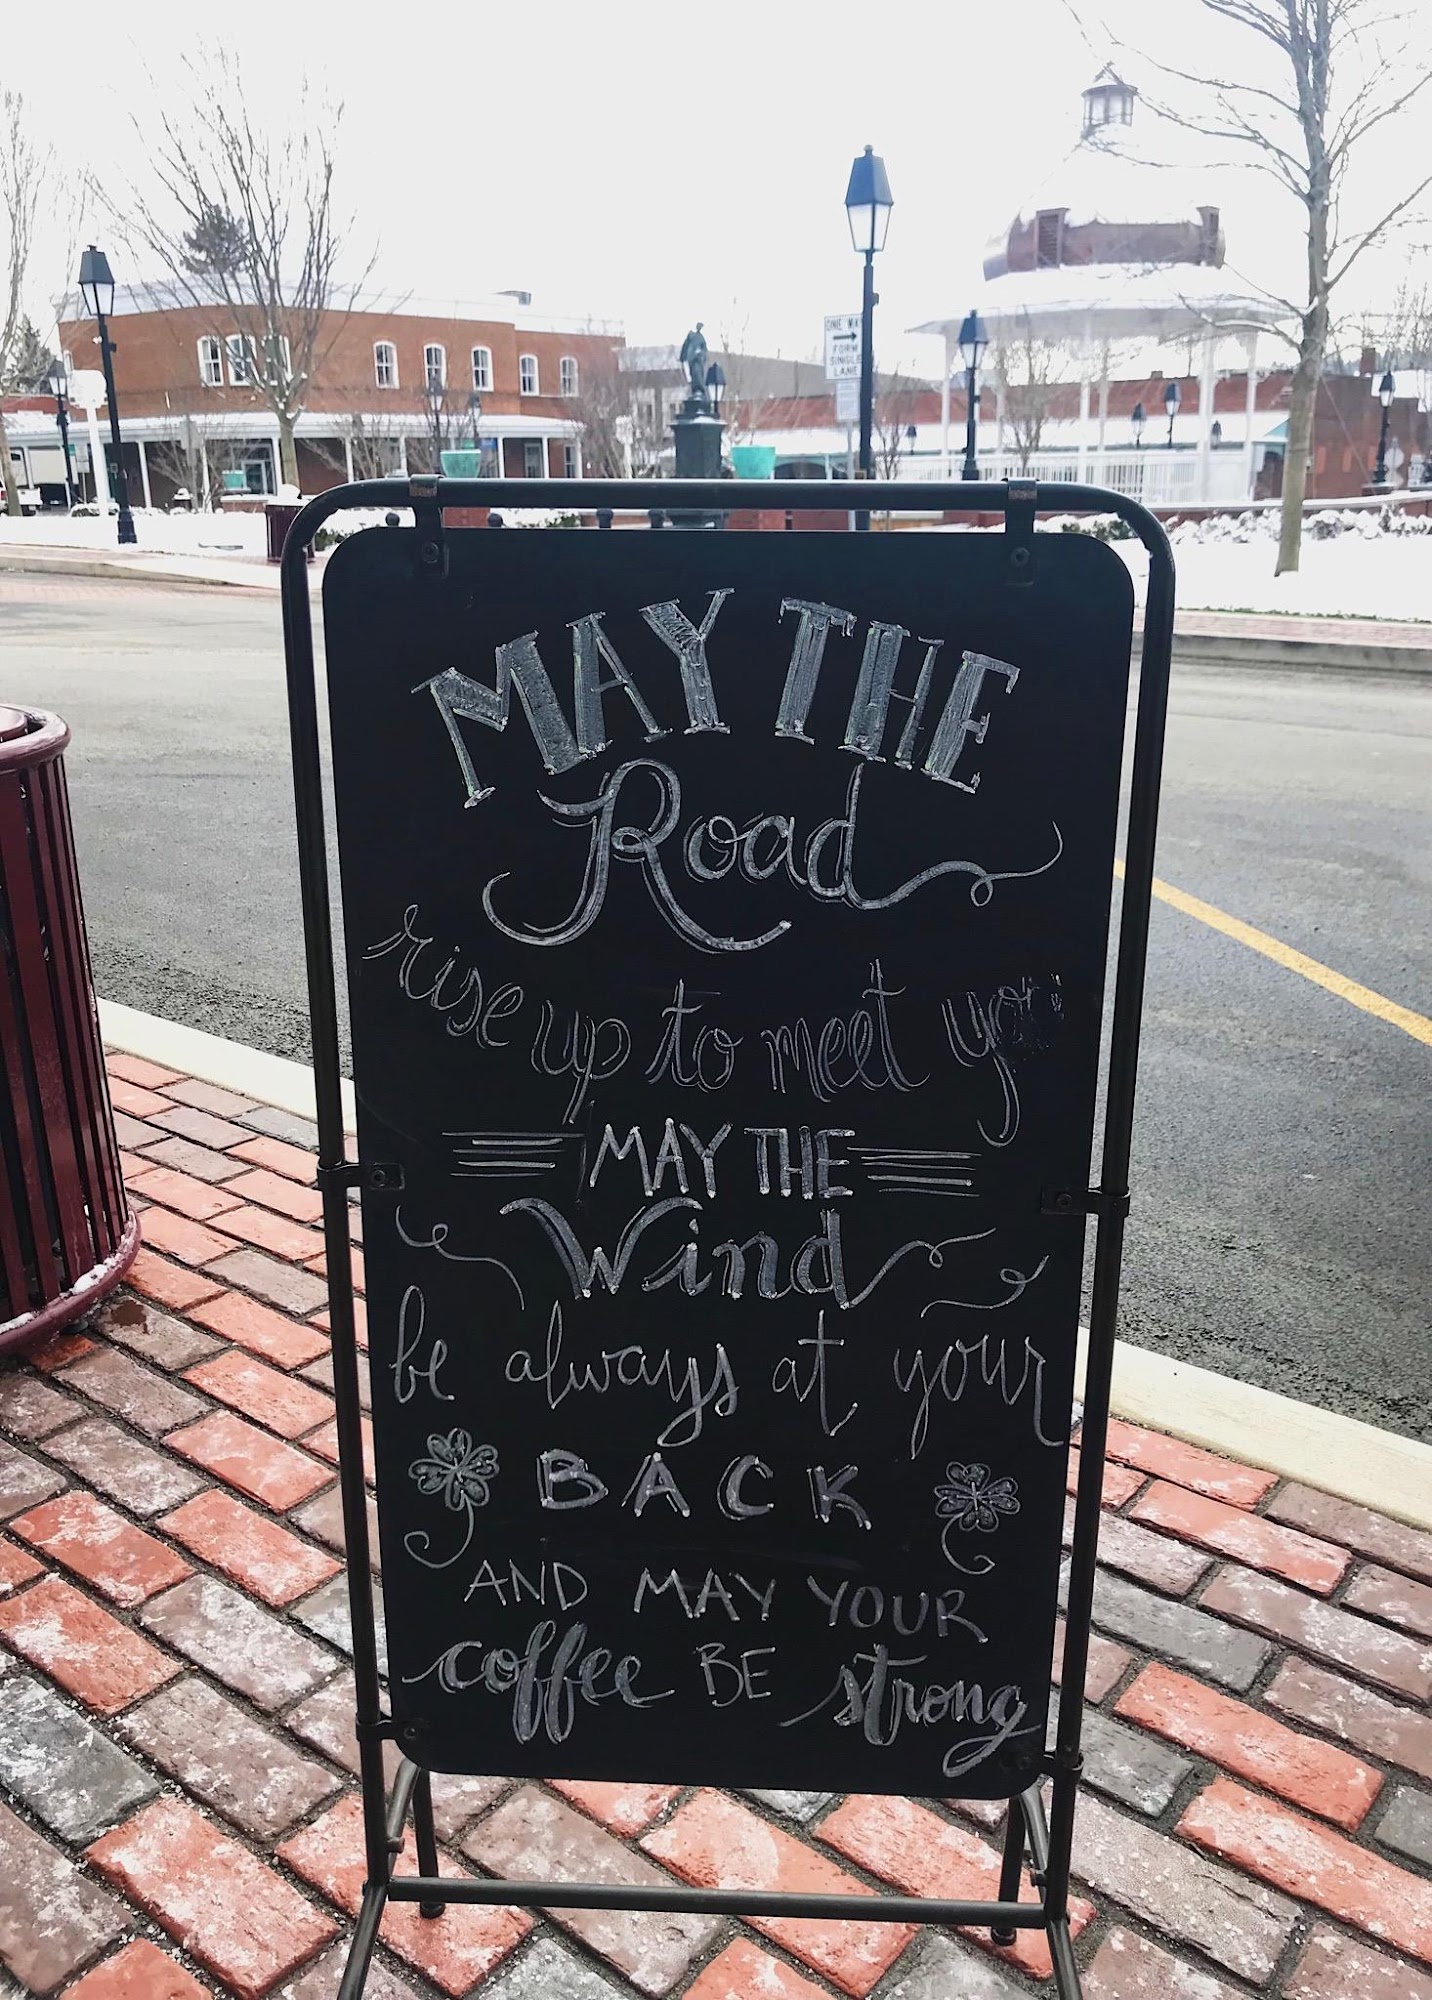 ONE WAY
FORM
SINGLE
LANE
MAY THE
Road
rise up to meet you
MAY THE
Wind
be always at your
BACK
AND MAY YOUR
coffee BE strong